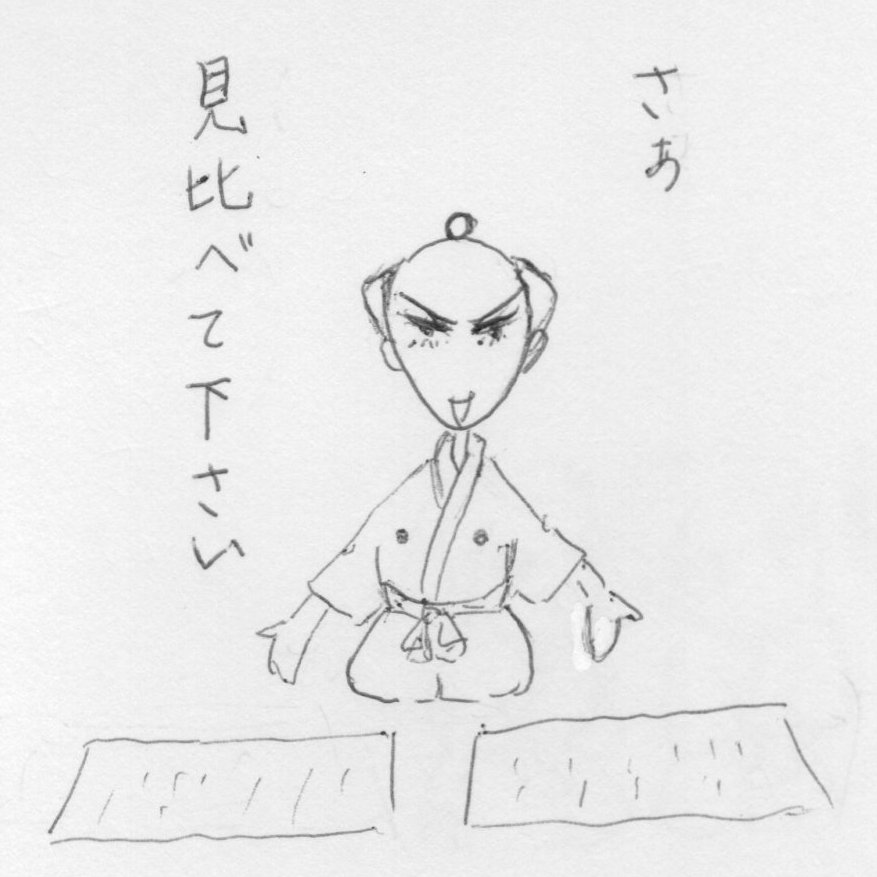 さあ
見比べて下さい